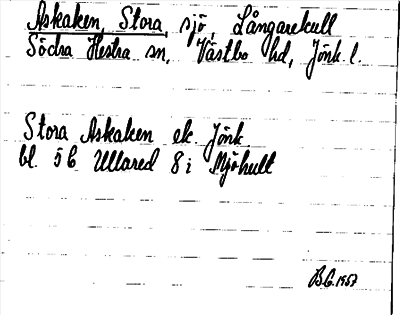 Askaken, Stora, sjö, Långarekull
Södra Hestra sn, Västbo hd, Jönk. l.
Stora Askaken ek. Jönk.
bl. 56 Ullared 8 i Mjöhult
B.G. 1957